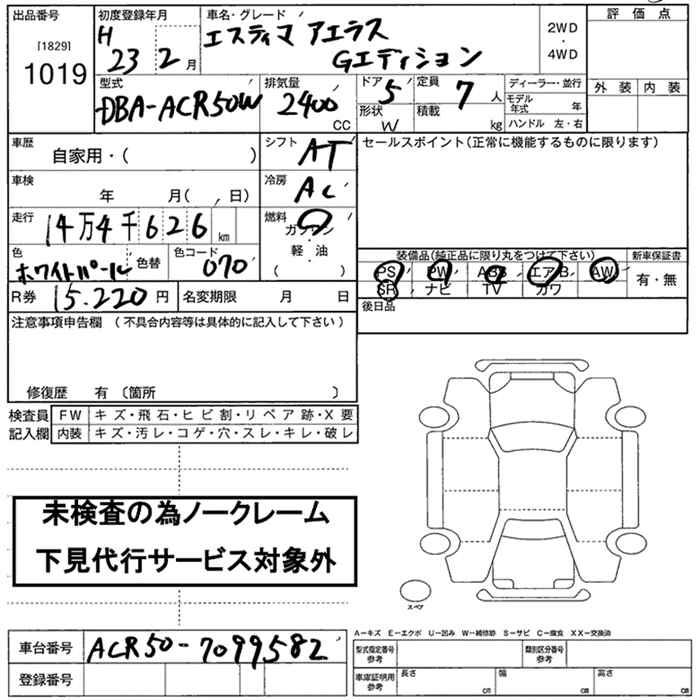 出品番号 初度登録年月 車名・グレード 評価点
[1829] H エスティマ アエラス 2WD
1019 23 2月 Gエディション ・
4WD
型式 排気量 ドア 5 定員 7人 ディーラー・並行 外装 内装
DBA-ACR50W 2400 CC 形状 W 積載 kg モデル年式 年
ハンドル 左・右
車歴 自家用・( ) シフト AT セールスポイント(正常に機能するものに限ります)
車検 年 月( , 日) 冷房 AC
走行 14万4千626km 燃料 ガソリン
・
軽・油
( )
色 ホワイトパール 色替 色コード 070 装備品(純正品に限り丸をつけて下さい) 新車保証書
PS PW ABS エアB AW 有・無
SR ナビ TV カワ
R券 15.220円 名変期限 月 日 後日品
注意事項申告欄 (不具合内容等は具体的に記入して下さい)
修復歴 有 〔箇所 〕
検査員 FW キズ・飛石・ヒビ割・リペア跡・X要
記入欄 内装 キズ・汚レ・コゲ・穴・スレ・キレ・破レ
未検査の為ノークレーム
下見代行サービス対象外
スペア
A-キズ E-エクボ U-凹み W-補修跡 S-サビ C-腐食 XX-交換済
車台番号 ACR50-7099582 型式指定番号 参考 類別区分番号 参考
登録番号 車庫証明用 参考 長さ cm 幅 cm 高さ cm